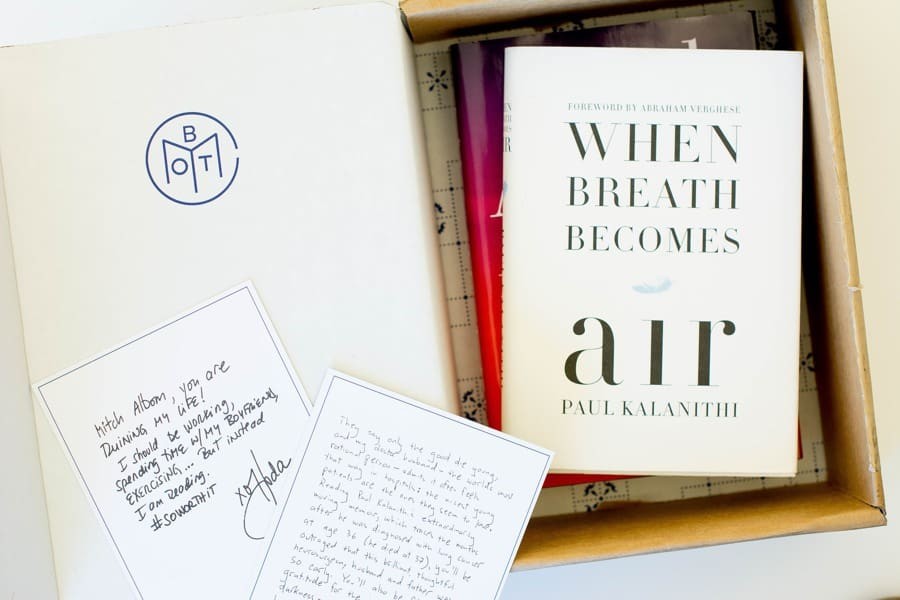 B
OMT
FOREWORD BY ABRAHAM VERGHESE
WHEN
BREATH
BECOMES
air
PAUL KALANITHI
Mitch Albom, you are
Ruining my life!
I should be working,
spending time w/ my Boyfriend,
Exercising... But instead
I am Reading.
#SOWORTHIT
xo Hoda
They say only the good die young,
and my doctor husband - the world's most
rational person - admits it often feels
that way in hospitals: the nicest young
patients are the ones they seem to lose.
Reading Paul Kalanithi's extraordinarily
moving memoir, which traces the months
after he was diagnosed with lung cancer
at age 36 (he died at 37), you'll be
outraged that this brilliant, thoughtful
neurosurgeon, husband and father was
so early. You'll also be
gratitude for the
darkness